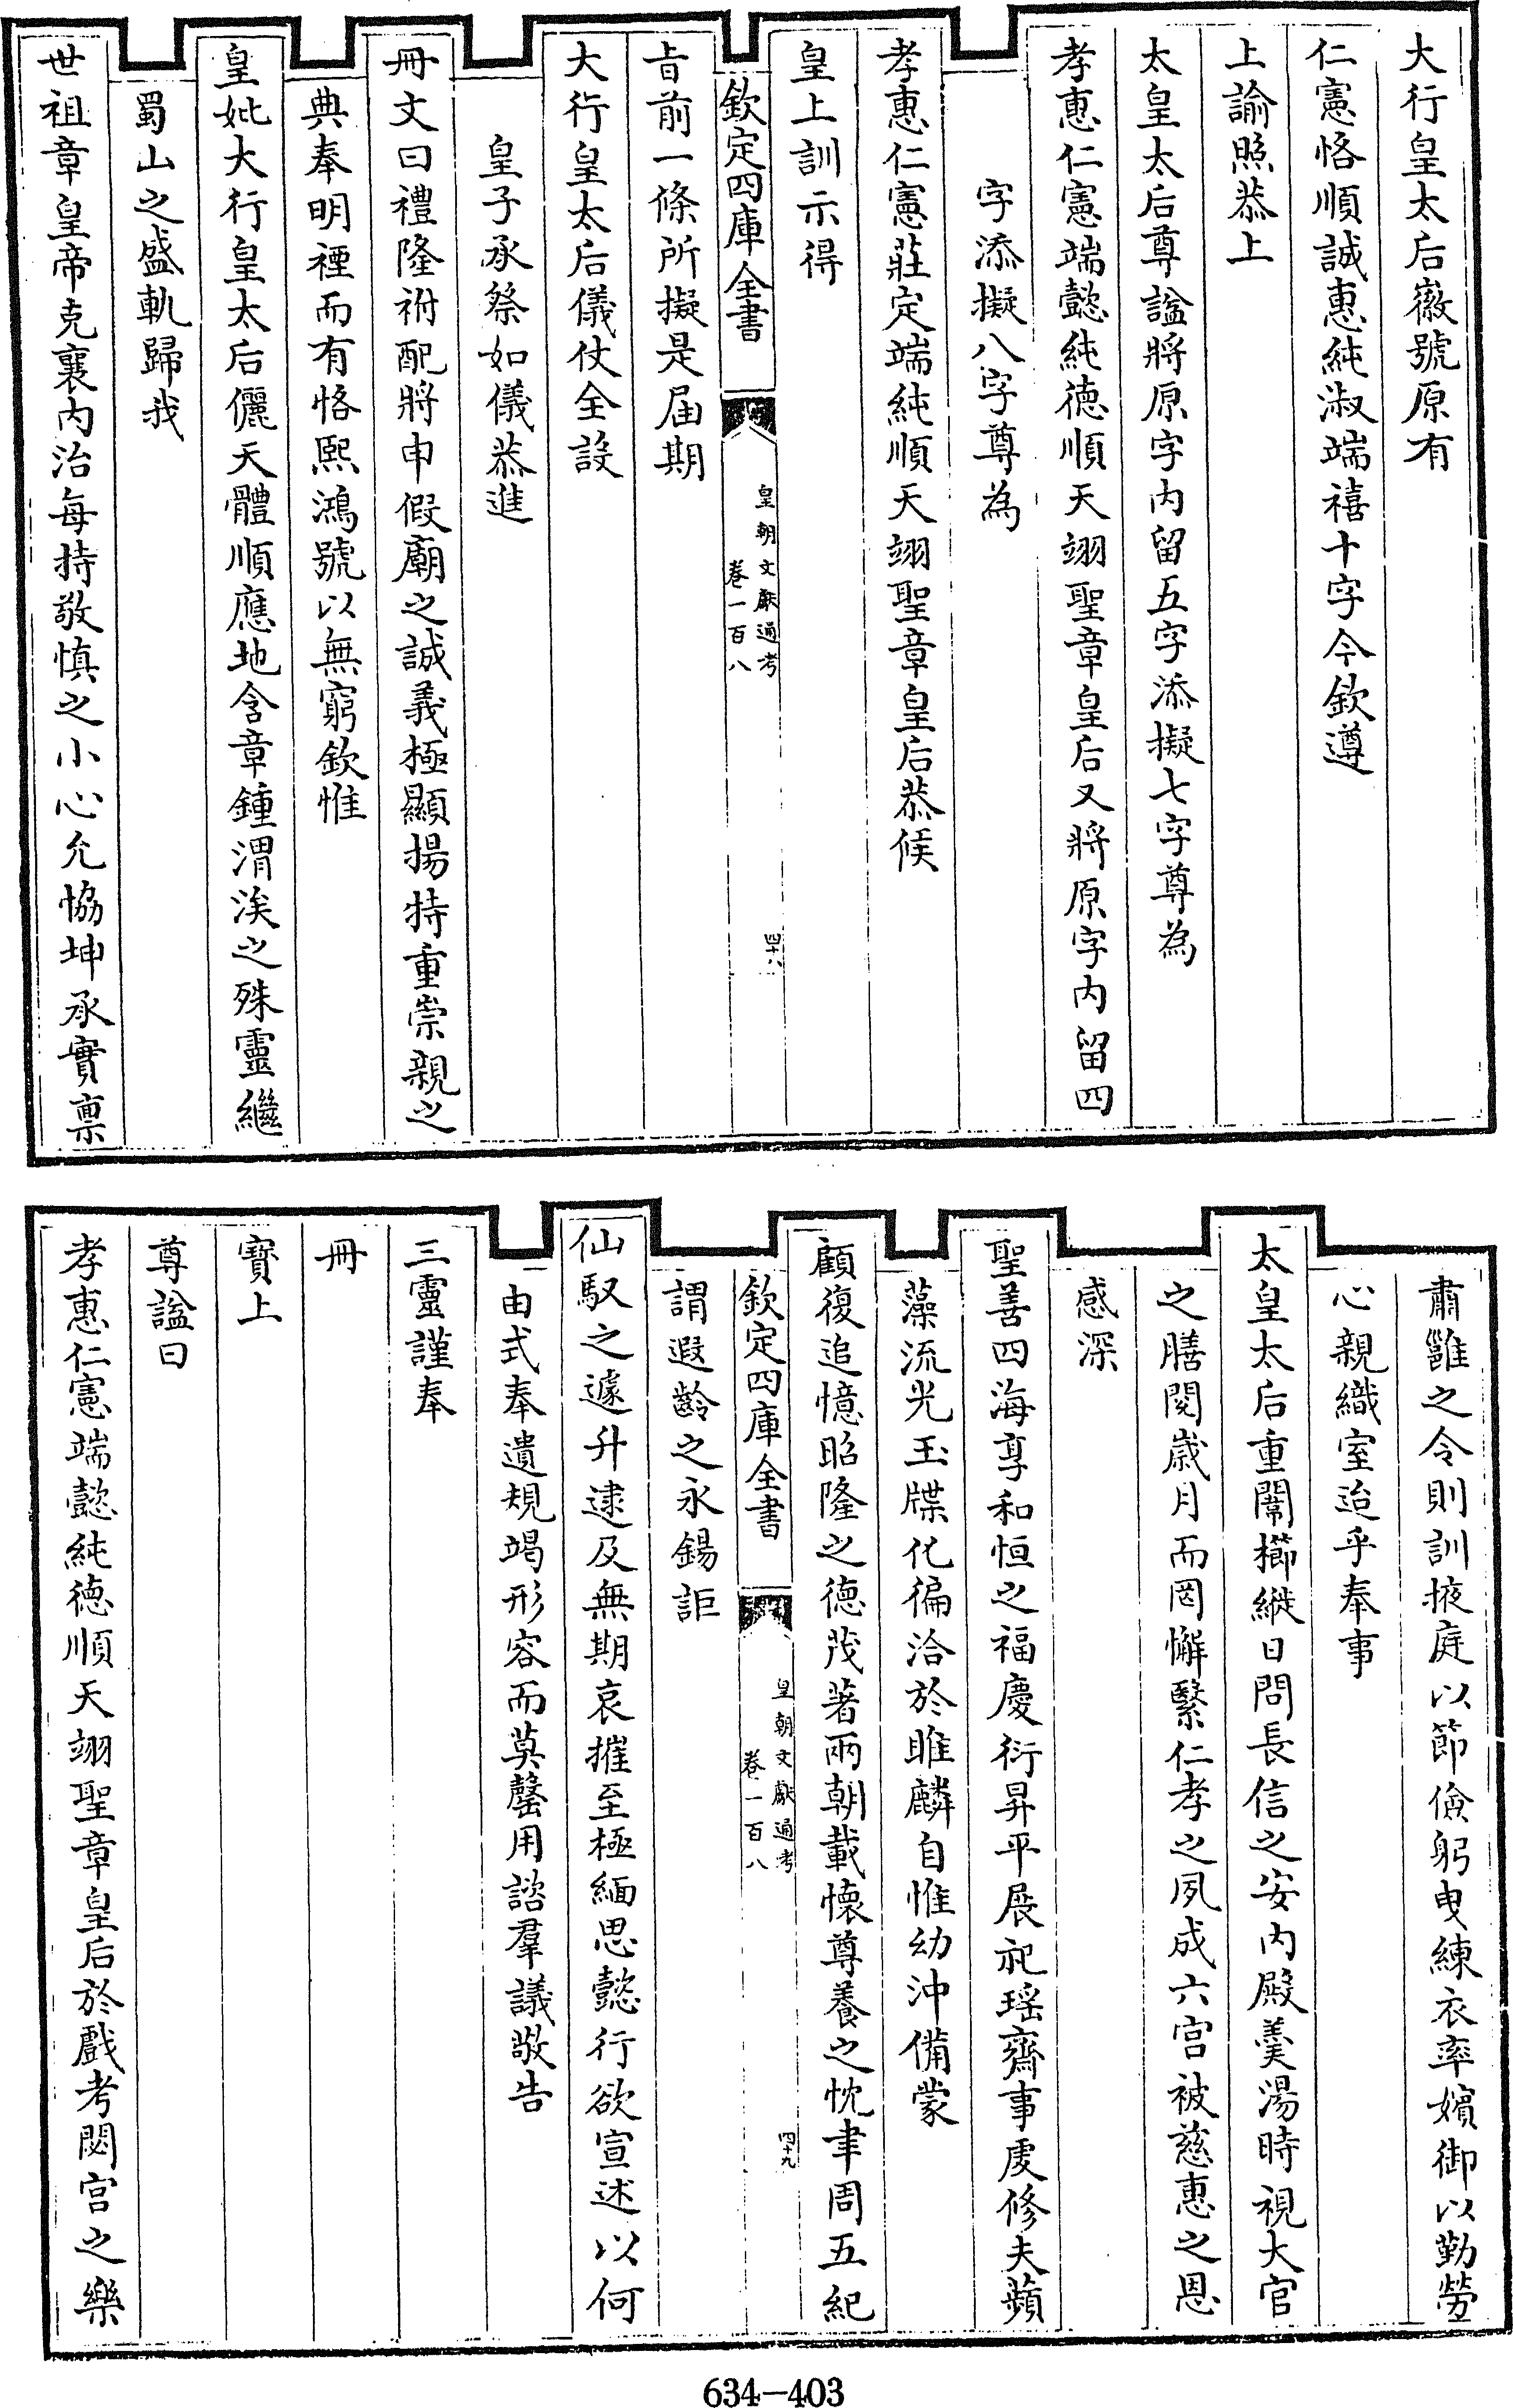 大行皇太后徽號原有
仁憲恪順誠惠純淑端禧十字今欽遵
上諭照恭上
太皇太后尊諡將原字內留五字添擬七字尊為
孝惠仁憲端懿純德順天翊聖章皇后又將原字內留四
字添擬八字尊為
孝惠仁憲莊定端純順天翊聖章皇后恭候
皇上訓示得
欽定四庫全書
皇朝文獻通考
卷一百八
四十八
旨前一條所擬是屆期
大行皇太后儀仗全設
皇子承祭如儀恭進
冊文曰禮隆祔配將申假廟之誠義極顯揚特重崇親之
典奉明禋而有恪熙鴻號以無窮欽惟
皇妣大行皇太后儷天體順應地含章鍾渭涘之殊靈繼
蜀山之盛軌歸我
世祖章皇帝克襄內治每持敬慎之小心允協坤承實禀
肅雝之令則訓掖庭以節儉躬曳練衣率嬪御以勤勞
心親織室迨乎奉事
太皇太后重闈櫛縰日問長信之安內殿羮湯時視大官
之膳閱歲月而罔懈繄仁孝之夙成六宫被慈惠之恩
感深
聖善四海享和恒之福慶衍昇平展祀瑶齋事虔修夫蘋
藻流光玉牒化徧洽於雎麟自惟幼沖備蒙
顧復追憶昭隆之德茂著兩朝載懷尊養之忱聿周五紀
欽定四庫全書
皇朝文獻通考
卷一百八
四十九
謂遐齡之永錫詎
仙馭之遽升逮及無期哀摧至極緬思懿行欲宣述以何
由式奉遺規竭形容而莫罄用諮羣議敬告
三靈謹奉
冊
寶上
尊諡曰
孝惠仁憲端懿純德順天翊聖章皇后於戲考閟宫之樂
634-403